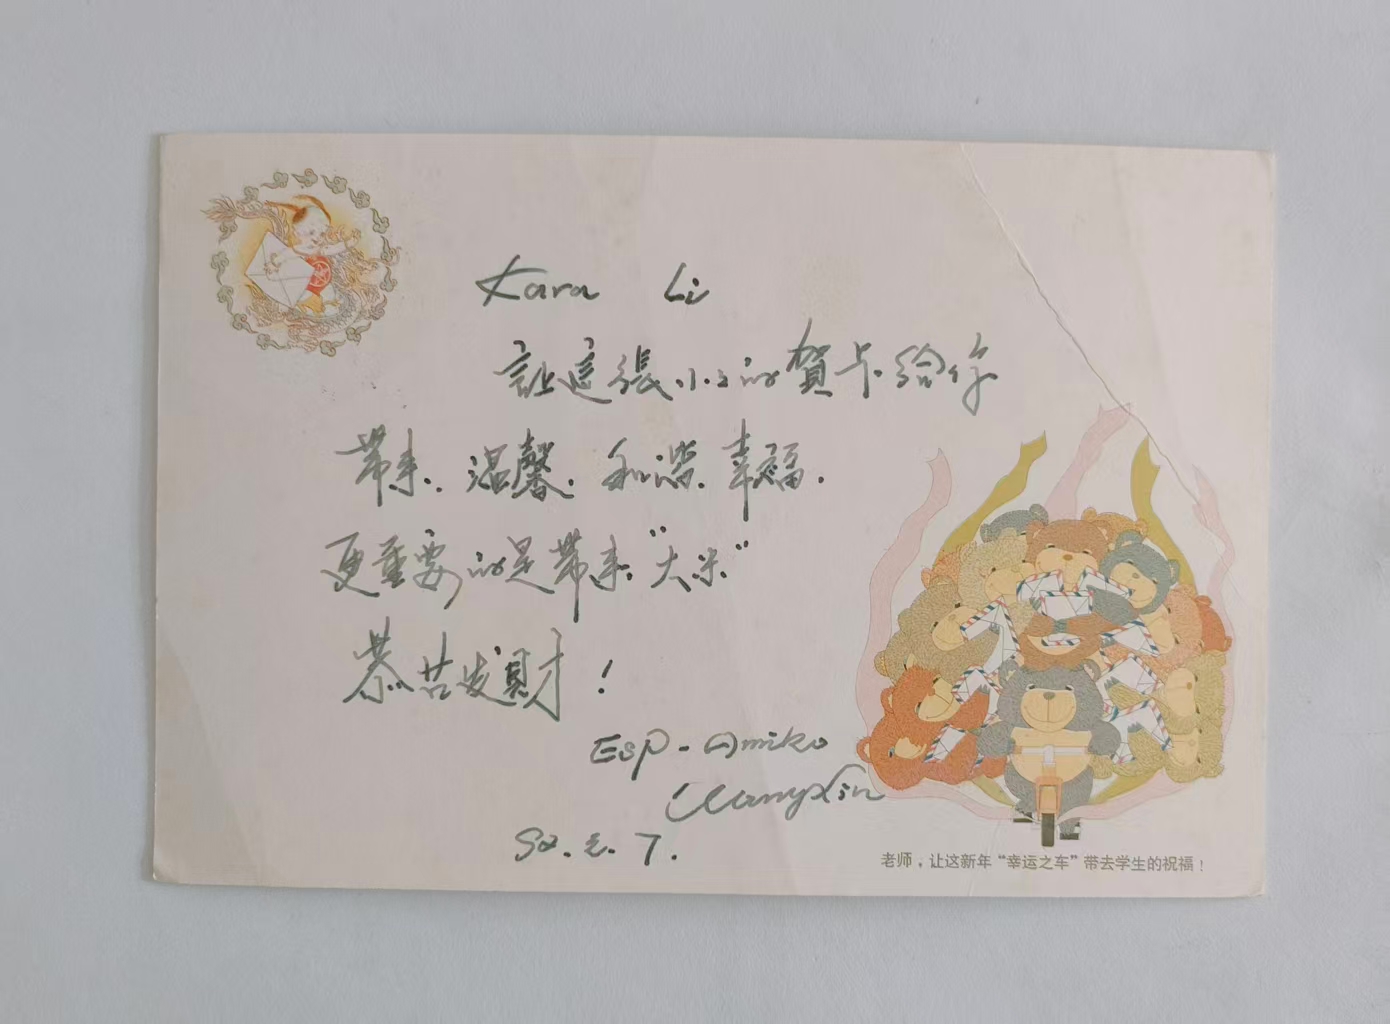 Kara Li
讓這張小小的賀卡給你
带来. 温馨. 和谐. 幸福.
更重要的是带来“大米”
恭喜发財！
Esp-Amiko
WangXin
92. 2. 7.
老师，让这新年“幸运之车”带去学生的祝福！